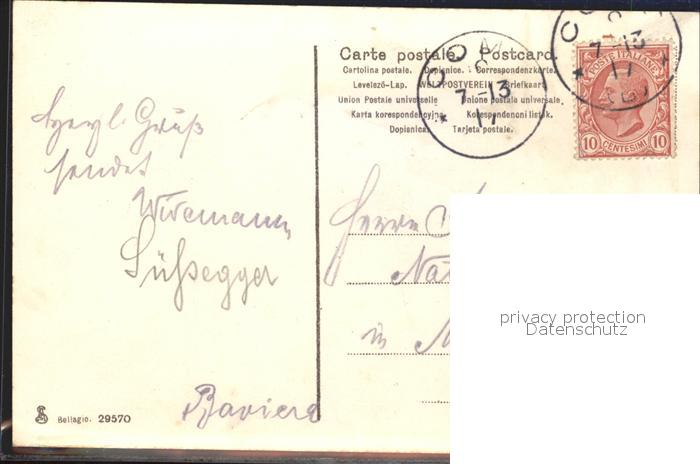 Carte postale. Postcard.
Cartolina postale. Dopisnice. Correspondenzkarte.
Levelező-Lap. WELTPOSTVEREIN Briefkaart.
Union Postale universelle Unione postale universale.
Karta korespondencyjna. Korespondenoni listek.
Dopisnica. Tarjeta postale.
COMO
7-13
17
7-13
17
POSTE ITALIANE
10 CENTESIMI 10
Herzl. Gruß
sendet
Widemann
Süßegger
Herrn
in
Baviera
Bellagio. 29570
privacy protection
Datenschutz